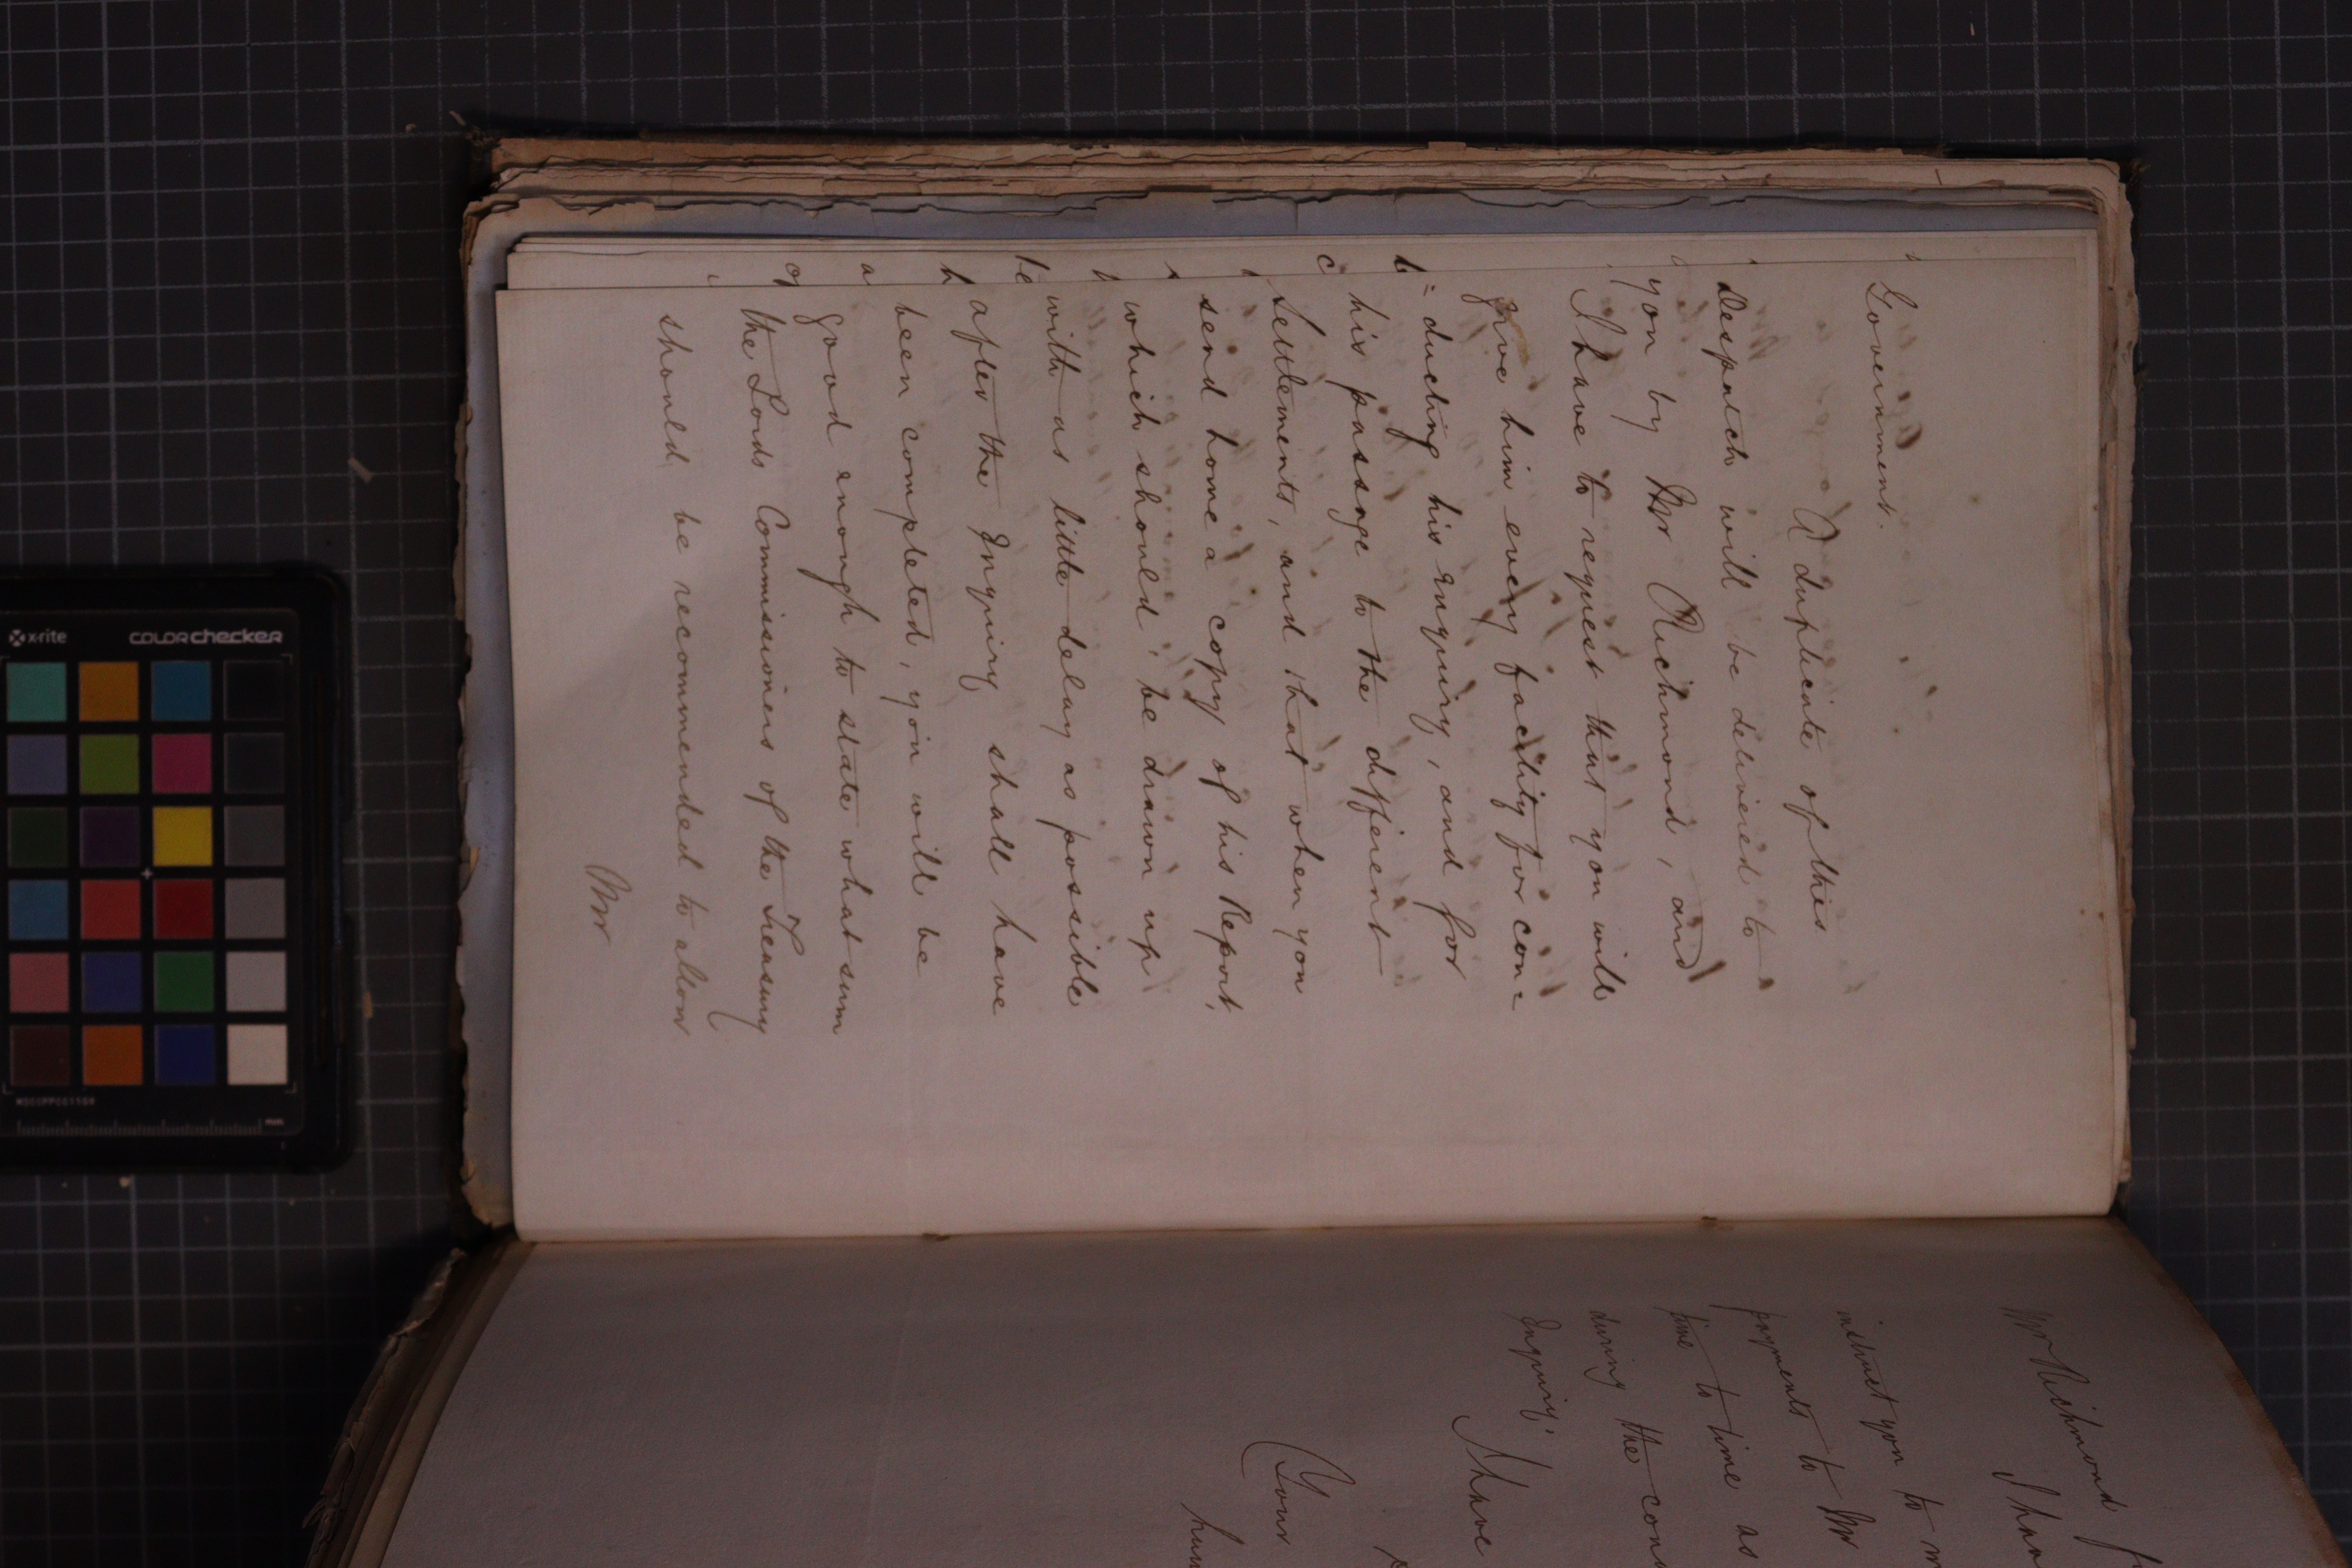 Government.
A duplicate of this
Despatch will be delivered to
you by Mr Richmond, and
I have to request that you will
give him every facility for con=
=ducting his enquiry, and for
his passage to the different
Settlements, and that when you
send home a copy of his Report,
which should be drawn up
with as little delay as possible
after the Inquiry shall have
been completed, you will be
good enough to state what sum
the Lords Commissioners of the Treasury
should be recommended to allow
Mr
Mr Richmond f
I hav
instruct you to m
payments to Mr
time to time as
during the con
Inquiry.
I have
Your
hum
x-rite
colorchecker
mm